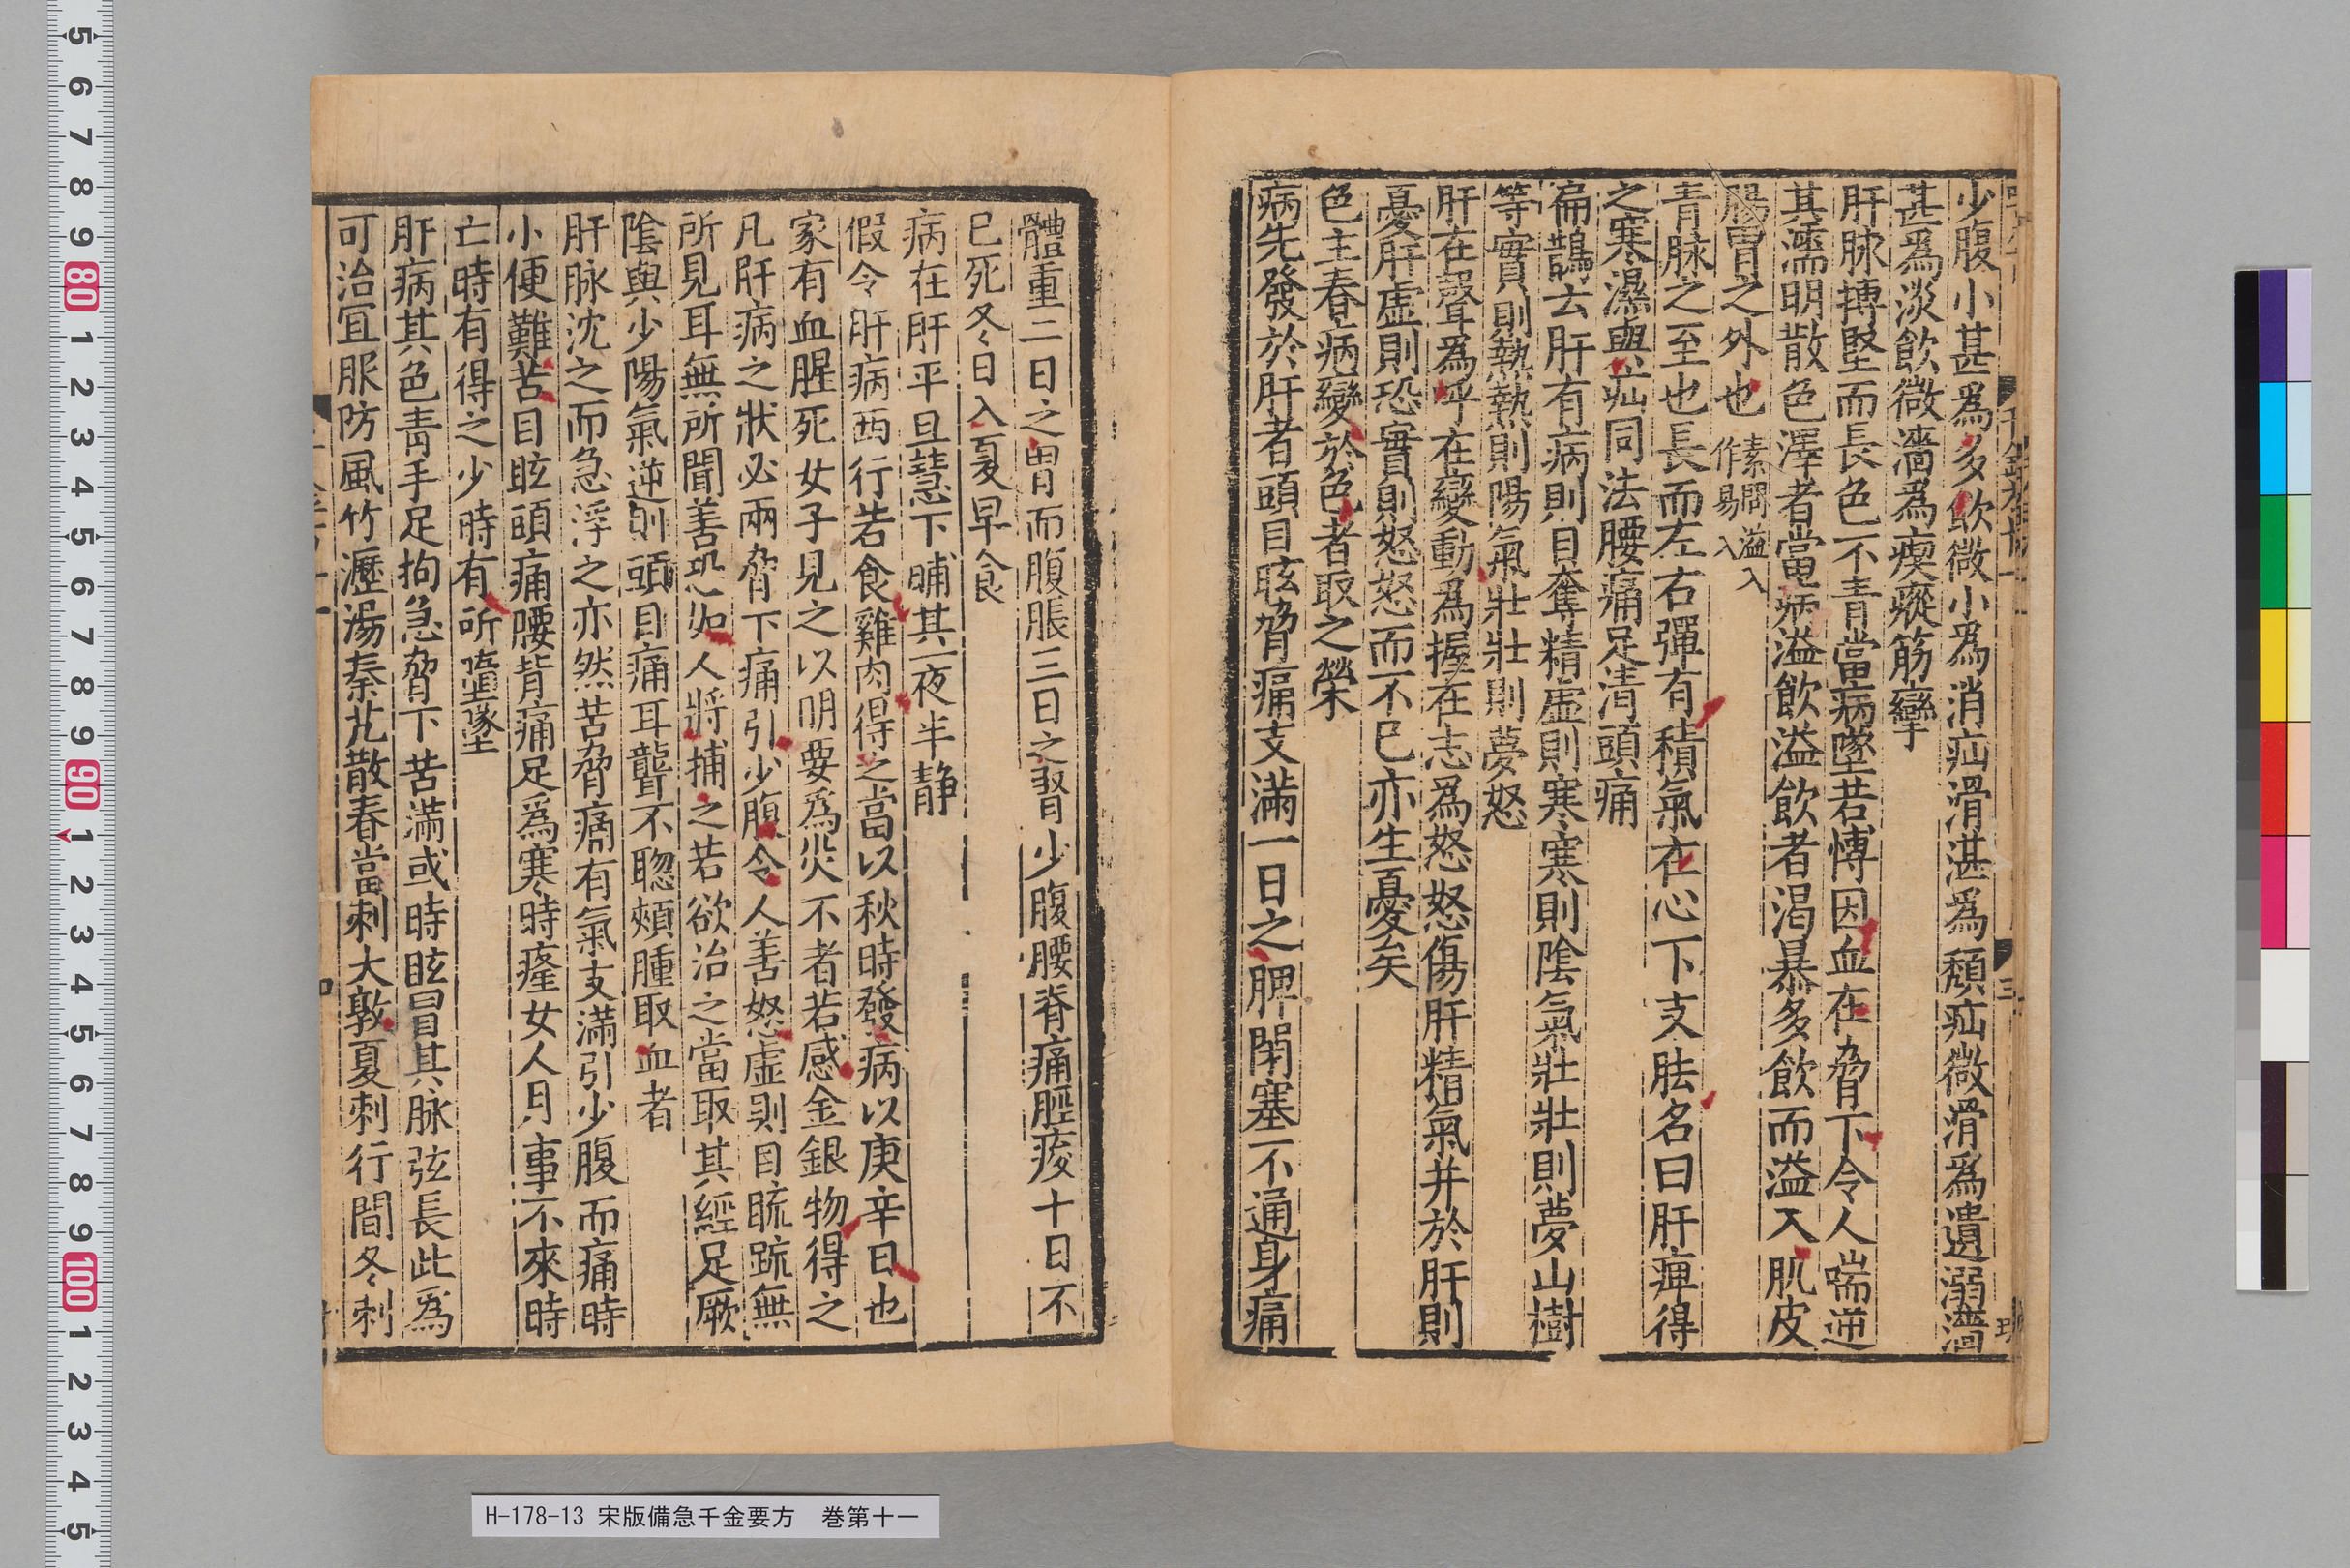 少腹小甚爲多飲微小爲消疝滑甚爲㿗疝微滑爲遺溺濇
甚爲淡飲微濇爲瘈瘲筋攣
肝脉搏堅而長色不青當病墜若愽因血在脅下令人喘逆
其濡明散色澤者當病溢飲溢飲者渴暴多飲而溢入肌皮
腸胃之外也
素問溢入
作易入
青脉之至也長而左右彈有積氣在心下支胠名曰肝痺得
之寒濕與疝同法腰痛足清頭痛
扁鵲云肝有病則目奪精虛則寒寒則陰氣壯壯則夢山樹
等實則熱熱則陽氣壯壯則夢怒
肝在聲爲呼在變動爲握在志爲怒怒傷肝精氣并於肝則
憂肝虛則恐實則怒怒而不已亦生憂矣
色主春病變於色者取之滎
病先發於肝者頭目眩脅痛支滿一日之脾閉塞不通身痛
體重二日之胃而腹脹三日之腎少腹腰脊痛脛痠十日不
已死冬日入夏早食
病在肝平旦慧下晡其夜半靜
假令肝病西行若食雞肉得之當以秋時發病以庚辛日也
家有血腥死女子見之以明要爲災不者若感金銀物得之
凡肝病之狀必兩脅下痛引少腹令人善怒虛則目䀮䀮無
所見耳無所聞善恐如人將捕之若欲治之當取其經足厥
陰與少陽氣逆則頭目痛耳聾不聰頰腫取血者
肝脉沈之而急浮之亦然苦脅痛有氣支滿引少腹而痛時
小便難苦目眩頭痛腰背痛足爲寒時癃女人月事不來時
亡時有得之少時有所墮墜
肝病其色青手足拘急脅下苦滿或時眩冒其脉弦長此爲
可治宜服防風竹瀝湯秦艽散春當刺大敦夏刺行間冬刺
H-178-13 宋版備急千金要方 巻第十一